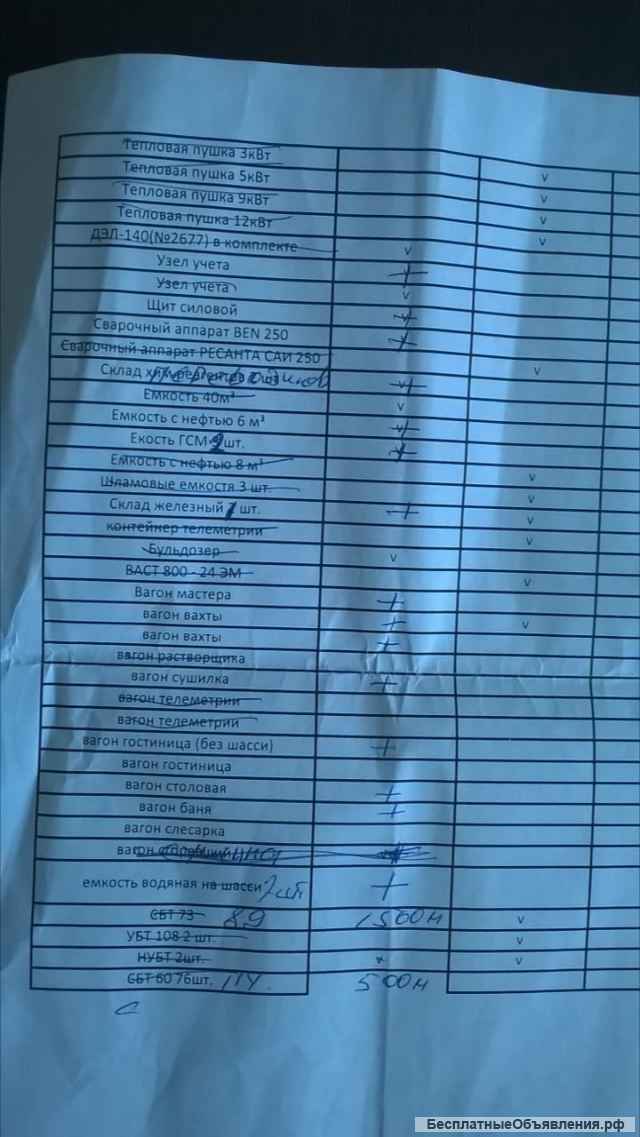 Тепловая пушка 3кВт
Тепловая пушка 5кВт v
Тепловая пушка 9кВт v
Тепловая пушка 12кВт v
ДЭЛ-140(№2677) в комплекте v
Узел учета +
Узел учета v
Щит силовой +
Сварочный аппарат BEN 250 +
Сварочный аппарат РЕСАНТА САИ 250 v
Склад
Емкость 40м³ v
Емкость с нефтью 6 м³ +
Екость ГСМ 2 шт. +
Емкость с нефтью 8 м³ v
Шламовые емкостя 3 шт. v
Склад железный 1 шт. + v
контейнер телеметрии v
Бульдозер v
ВАСТ 800 - 24 ЭМ v
Вагон мастера +
вагон вахты + v
вагон вахты +
вагон растворщика
вагон сушилка +
вагон телеметрии
вагон телеметрии
вагон гостиница (без шасси) +
вагон гостиница
вагон столовая +
вагон баня +
вагон слесарка
вагон
емкость водяная на шасси 2 шт +
СБТ 73 89 1500м v
УБТ 108 2 шт. v
НУБТ 2шт. v
СБТ 60 76шт. 114 500м
БесплатныеОбъявления.рф